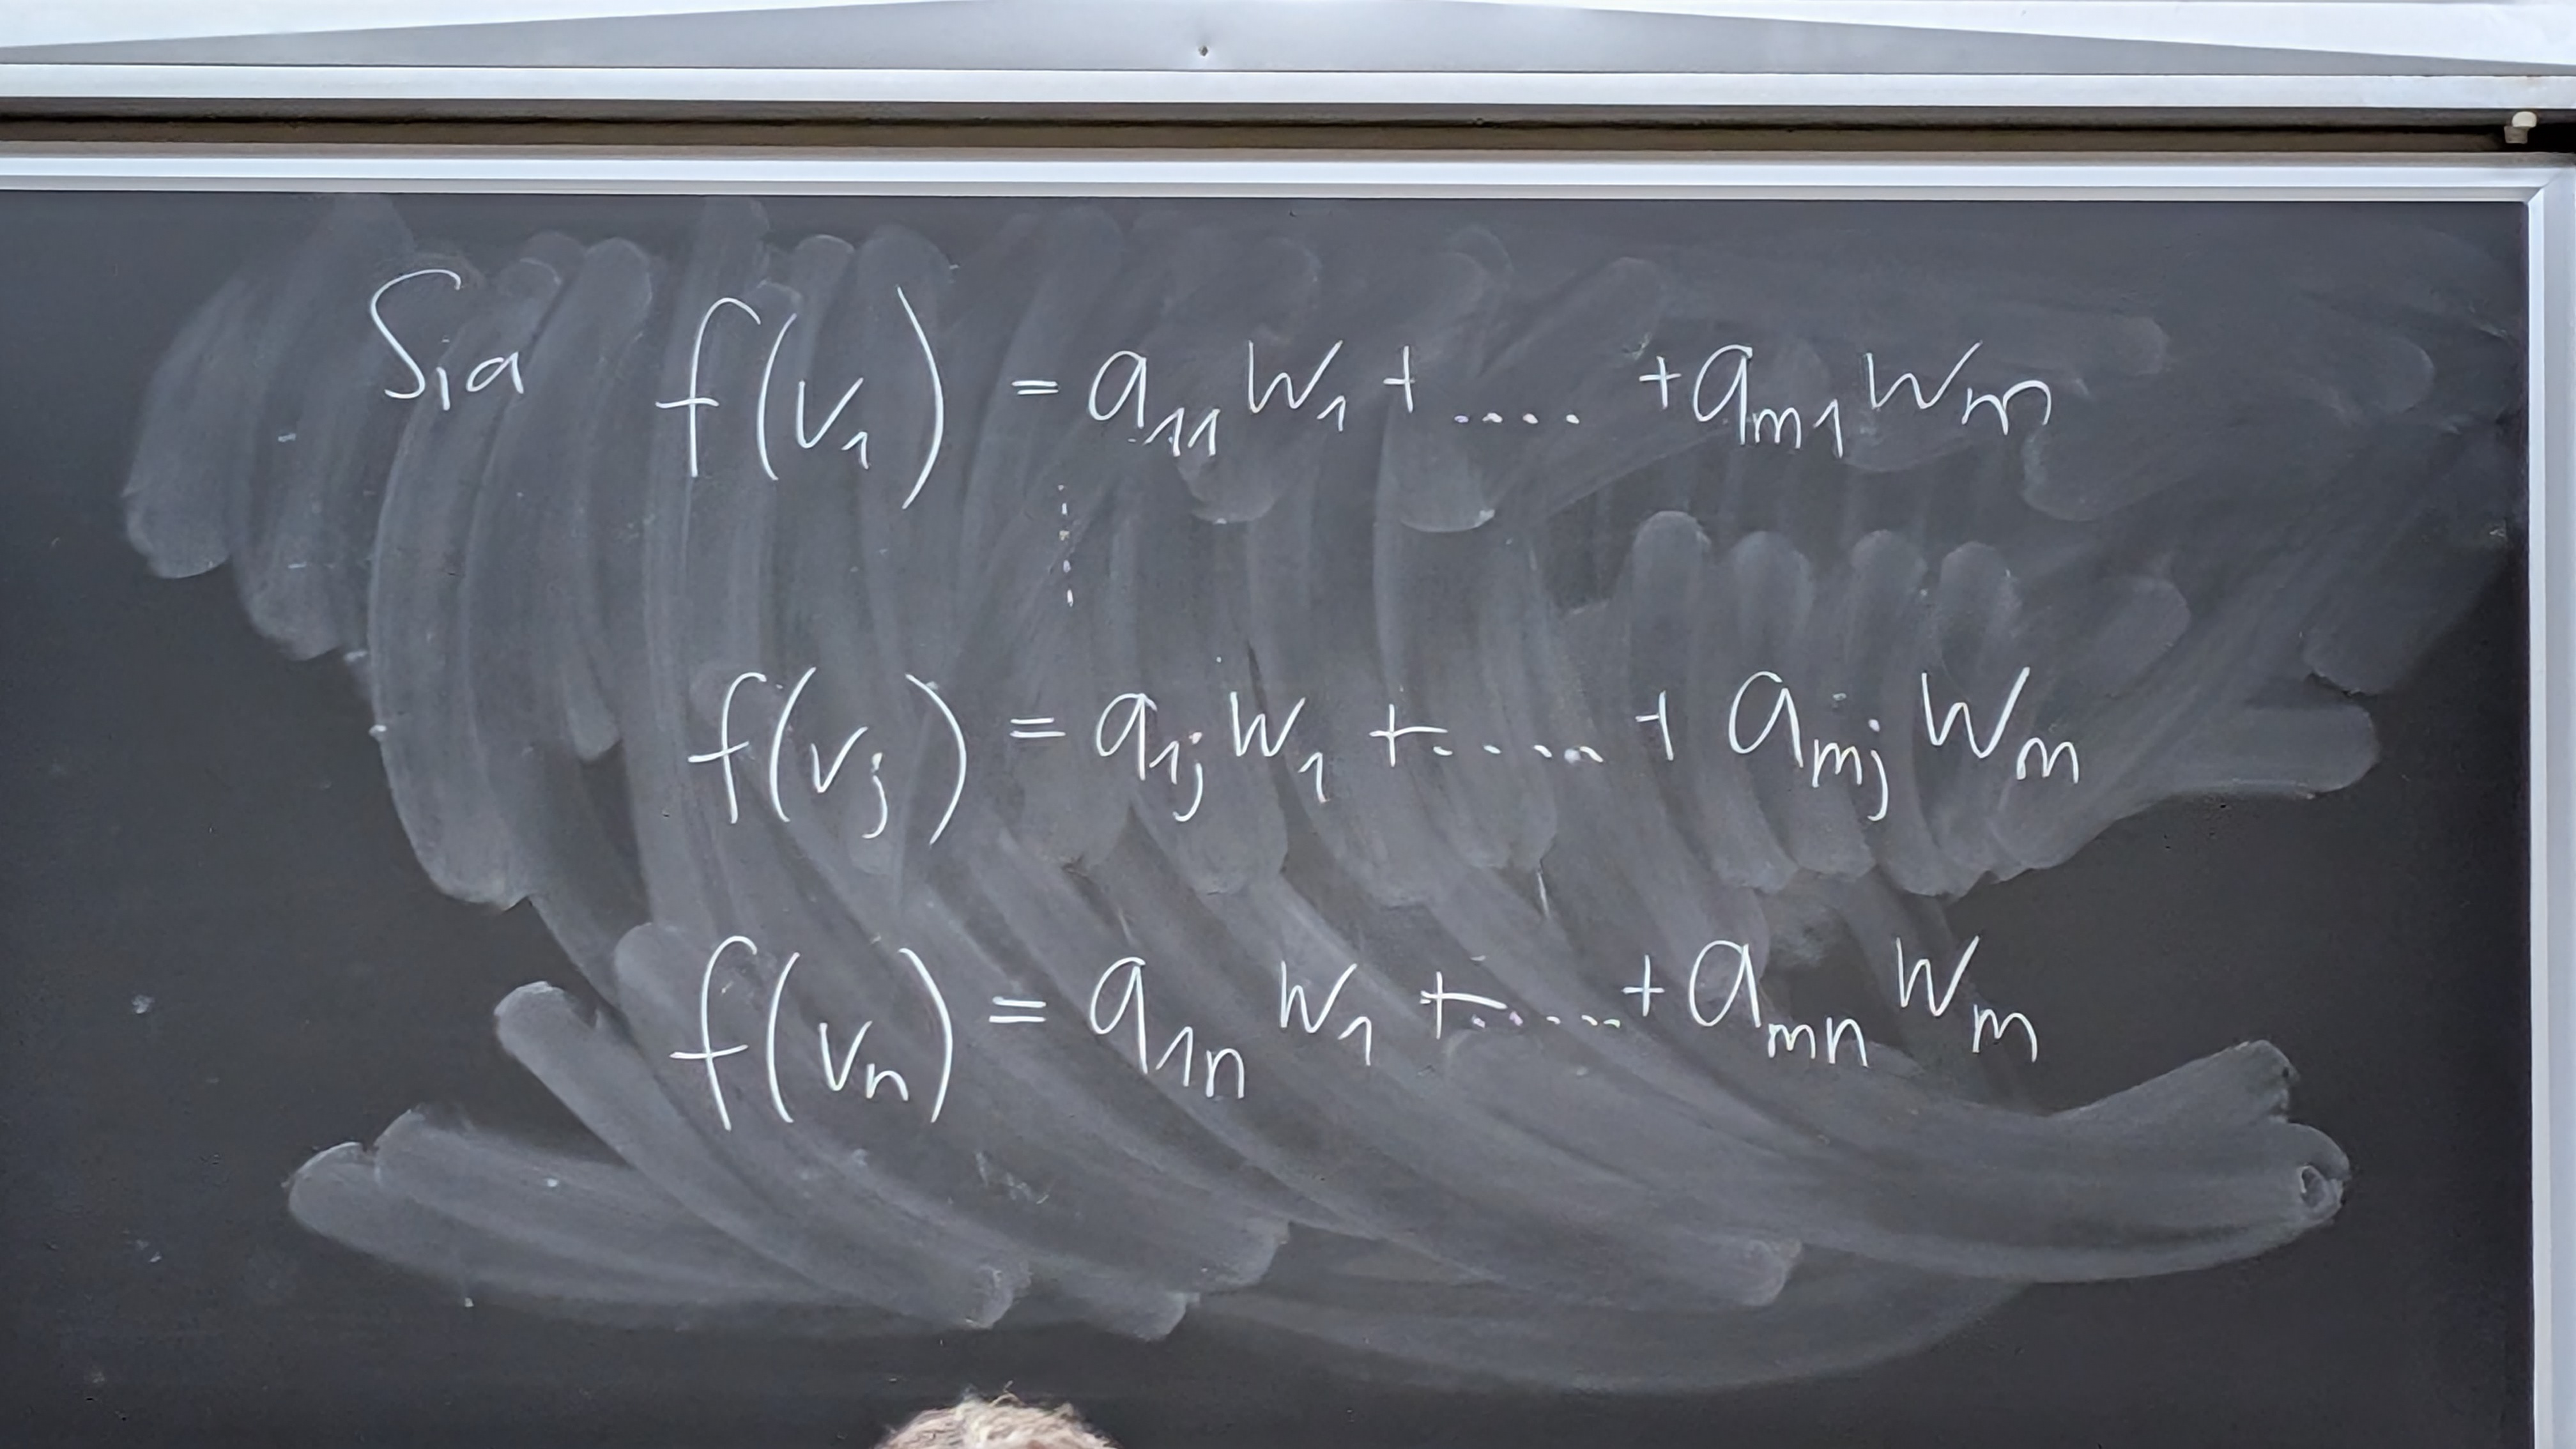 Sia f(v₁) = a₁₁ w₁ + .... + aₘ₁ wₘ
⋮
f(vⱼ) = a₁ⱼ w₁ + ..... + aₘⱼ wₘ
f(vₙ) = a₁ₙ w₁ + ..... + aₘₙ wₘ